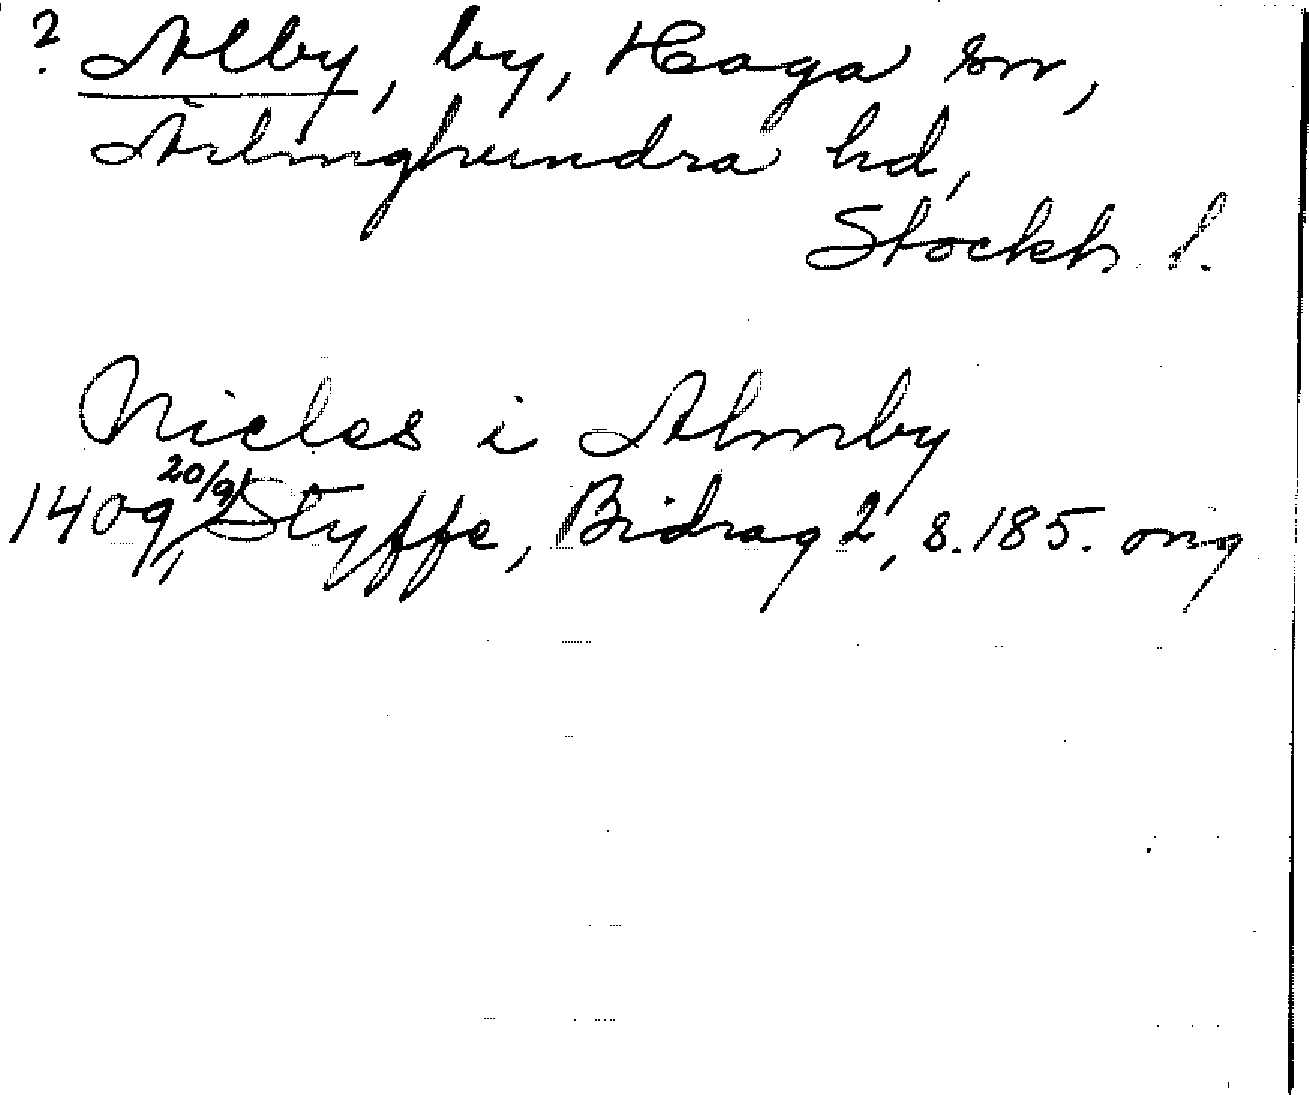 ? Alby, by, Haga sn,
Ärlinghundra hd,
Stockh. l.
Niclas i Almby
1409 20/9 Styffe, Bidrag 2, s. 185. orig